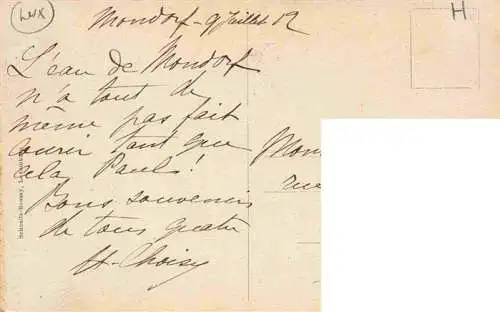 LUX
H
Mondorf - 9 Juillet 12
L'eau de Mondorf
n'a tout de
même pas fait
courir tant que
cela Pauls!
Bons souvenirs
de tous quatre
H. Choisy
rue